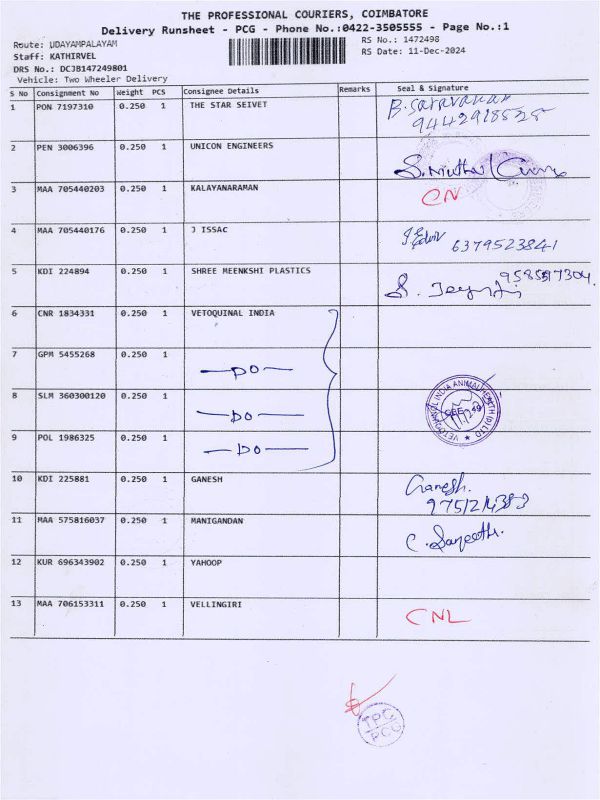 THE PROFESSIONAL COURIERS, COIMBATORE
Delivery Runsheet - PCG - Phone No.:0422-3505555 - Page No.:1
Route: UDAYAMPALAYAM RS No.: 1472498
Staff: KATHIRVEL RS Date: 11-Dec-2024
DRS No.: DCJB147249801
Vehicle: Two Wheeler Delivery
S No Consignment No Weight PCS Consignee Details Remarks Seal & Signature
1 PON 7197310 0.250 1 THE STAR SEIVET B. Saravanan
2 PEN 3006396 0.250 1 UNICON ENGINEERS
3 MAA 705440203 0.250 1 KALAYANARAMAN CN
4 MAA 705440176 0.250 1 J ISSAC 6379523841
5 KDI 224894 0.250 1 SHREE MEENKSHI PLASTICS
6 CNR 1834331 0.250 1 VETOQUINAL INDIA
7 GPM 5455268 0.250 1 —DO—
8 SLM 360300120 0.250 1 —DO—
VETOQUINOL INDIA ANIMAL HEALTH (P) LTD
9 POL 1986325 0.250 1 —DO—
10 KDI 225881 0.250 1 GANESH Ganesh.
11 MAA 575816037 0.250 1 MANIGANDAN
12 KUR 696343902 0.250 1 YAHOOP
13 MAA 706153311 0.250 1 VELLINGIRI CNL
TPC
PCG